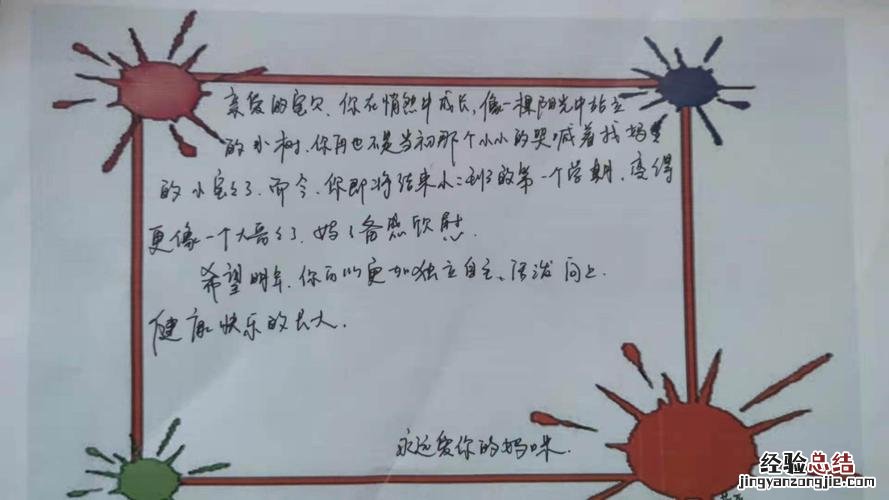 亲爱的宝贝、你在悄然中成长，像一棵阳光中站立
的小树、你再也不是当初那个小小的哭喊着找妈妈
的小宝宝了、而今、你即将结束小二班的第一个学期、变得
更像一个大哥哥了、妈妈备感欣慰．
希望明年、你可以更加独立自主、活泼向上．
健康快乐的长大．
永远爱你的妈咪．
经验总结
jingyanzongjie.com